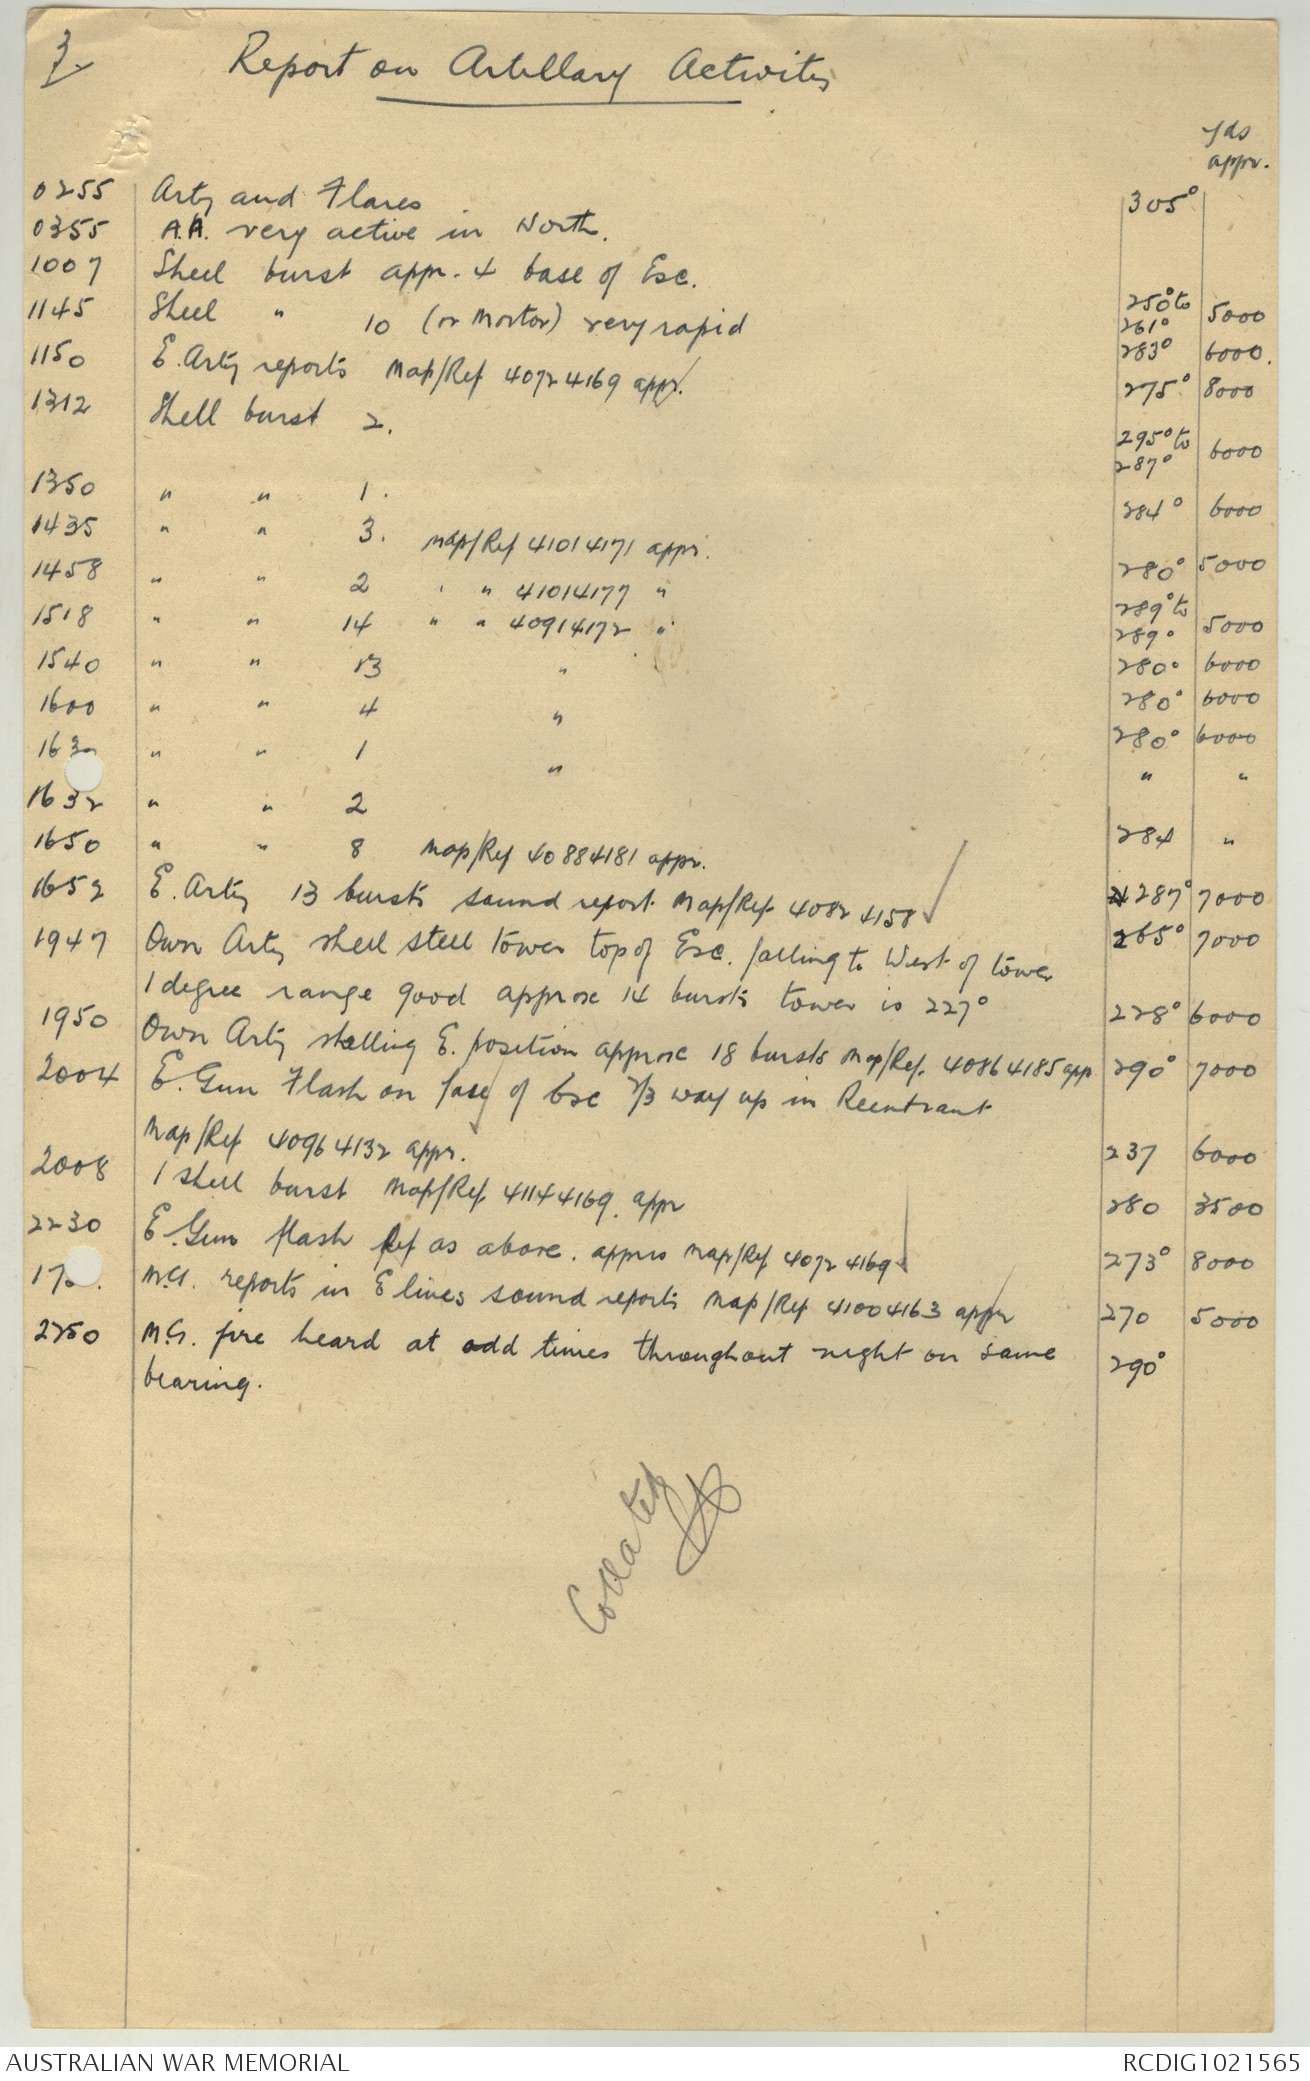 3.
Report on Artillary Activites
yds
appr.
0255 Arty and Flares 305°
0355 A.A. very active in North.
1007 Shell burst appr. 4 base of Esc. 250° to 261° 5000
1145 Shell " 10 (or Mortar) very rapid 283° 6000.
1150 E. Arty reports Map/Ref 40724169 appr. 275° 8000
1312 Shell burst 2. 295° to 287° 6000
1350 " " 1. 284° 6000
1435 " " 3. Map/Ref 41014171 appr. 280° 5000
1458 " " 2 " " 41014177 " 289° to 289° 5000
1518 " " 14 " " 40914172 " 280° 6000
1540 " " 13 " 280° 6000
1600 " " 4 " 280° 6000
163 " " 1 " " "
1632 " " 2
1650 " " 8 Map/Ref 40884181 appr. 284 "
1652 E. Arty 13 bursts sound report Map/Ref 40824158 287° 7000
1947 Own Arty shell steel tower top of Esc. falling to West of tower 265° 7000
1 degree range good approx 14 bursts tower is 227° 228° 6000
1950 Own Arty shelling E. position approx 18 bursts Map/Ref. 40864185 app 290° 7000
2004 E. Gun Flash on face of Esc 2/3 way up in Reentrant
Map/Ref 40964132 appr. 237 6000
2008 1 shell burst Map/Ref 41144169. appr 280 3500
2230 E. Gun flash Ref as above. approx Map/Ref 40724169 273° 8000
17 . M.G. reports in E lines sound reports Map/Ref 41004163 appr 270 5000
2250 M.G. fire heard at odd times throughout night on same 290°
bearing.
Collated
AUSTRALIAN WAR MEMORIAL RCDIG1021565